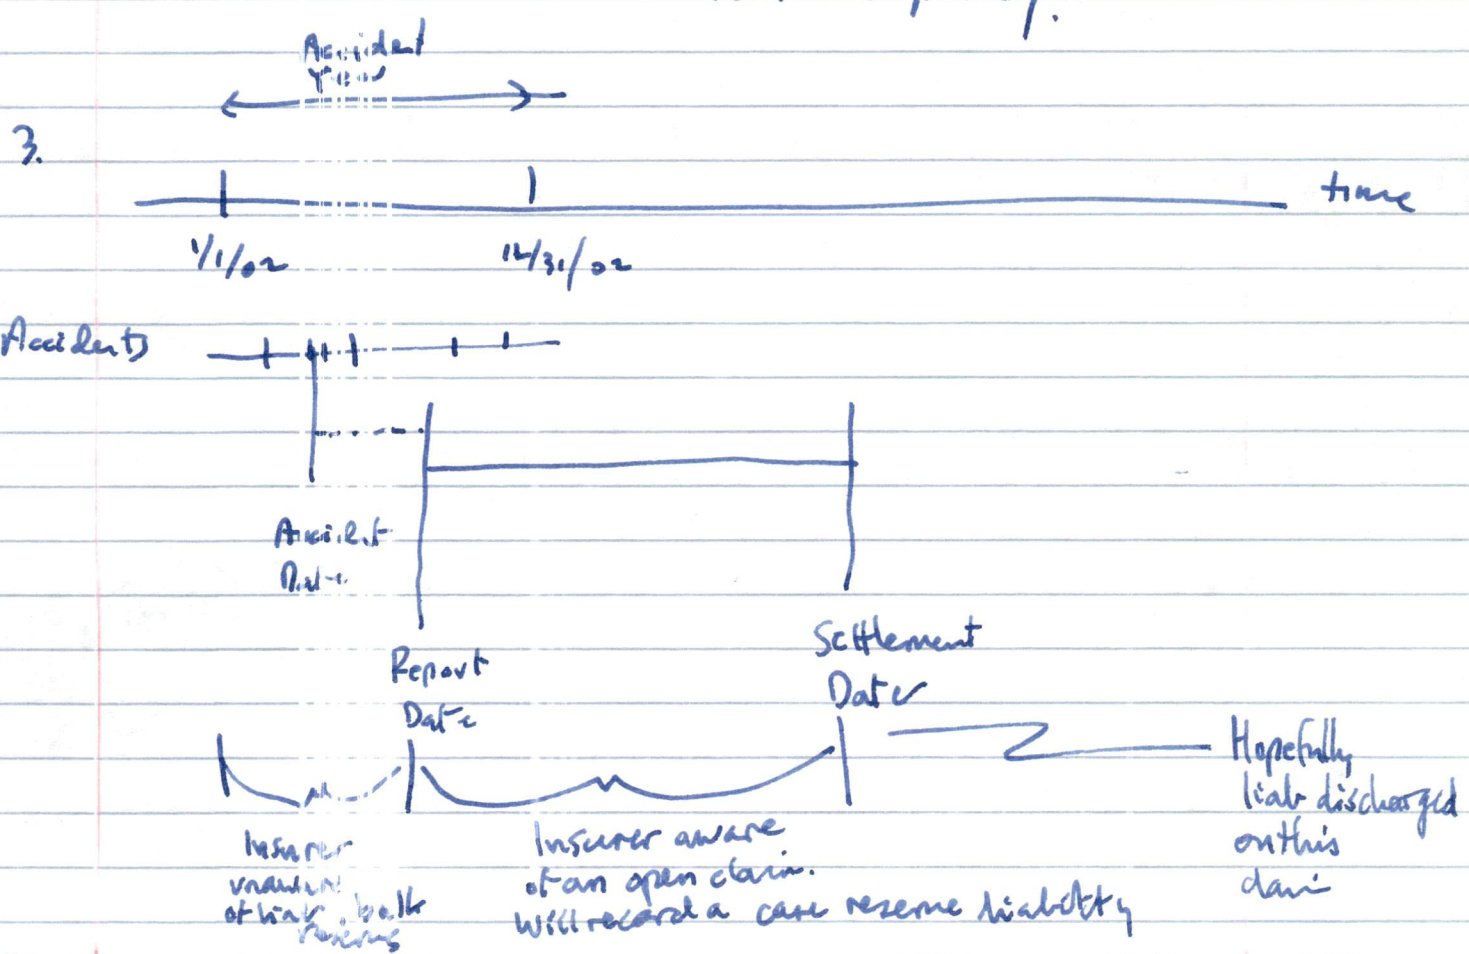 Accident
Year
3.
time
1/1/02
12/31/02
Accidents
Accident
Date
Report
Date
Settlement
Date
Hopefully
liab discharged
on this
claim
Insurer
unaware
of liab. bulk
reserves
Insurer aware
of an open claim.
Will record a case reserve liability